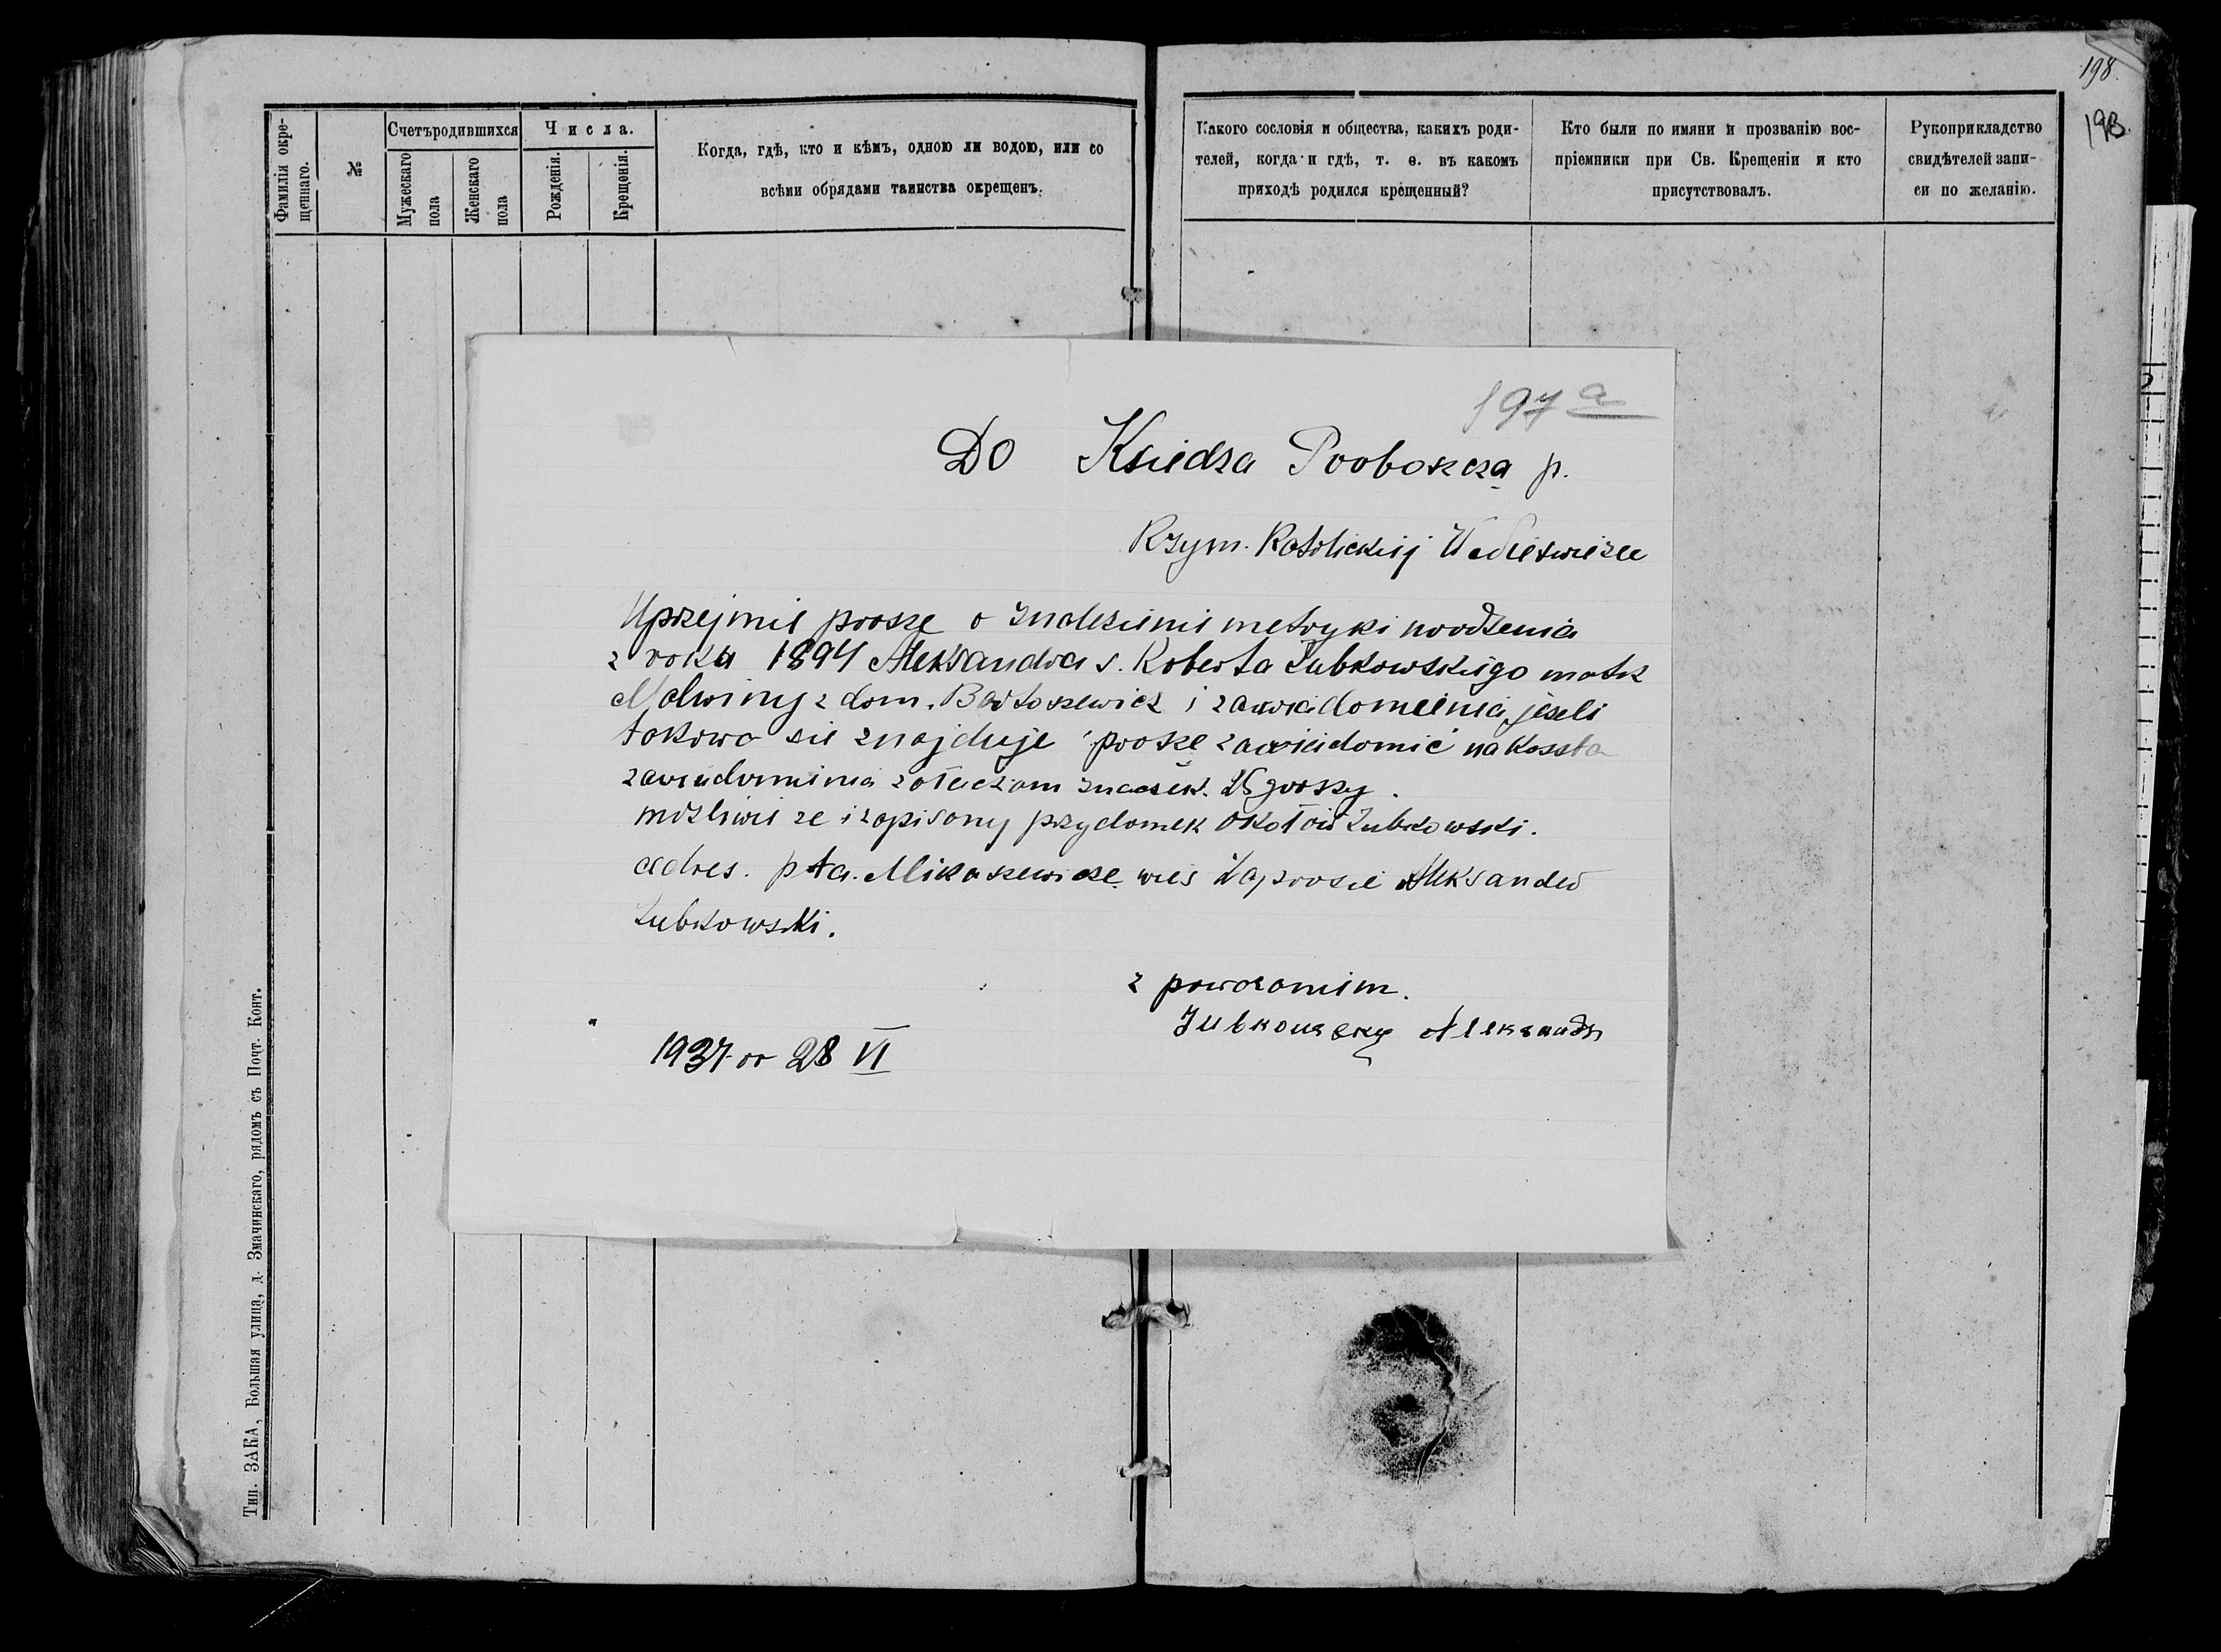 198.
198.
Фамилія окре-
щеннаго.
№
Счетъ родившихся
Мужескаго
пола
Женскаго
пола
Числа.
Рожденія.
Крещенія.
Когда, гдѣ, кто и кѣмъ, одною ли водою, или со
всѣми обрядами таинства окрещенъ.
Какого сословія и общества, какихъ роди-
телей, когда и гдѣ, т. е. въ какомъ
приходѣ родился крещенный?
Кто были по имяни и прозванію вос-
пріемники при Св. Крещеніи и кто
присутствовалъ.
Рукоприкладство
свидѣтелей запи-
си по желанію.
197 a
Do Ksiedza Proboszcza p.
Rzym. Katolickiej W Nieswieżee
Uprzejmie prosze o znalezienie metryki urodzenia
z roku 1894 Aleksandra s. Roberta Zubkowskiego matk
Malwiny z dom. Bartoszewicz i zawiadomienia, jeseli
takowa sie znajduje prosze zawiadomić na koszta
zawiadomienia załaczam znaczek. 25 groszy.
możliwie ze i zapisany przydomek Okołow Zubkowski.
adres. p ta. Mikaszewicze wies Zaprosie Aleksander
Zubkowski.
z powazaniem.
Zubkowsky Aleksandr
1937 or 28 VI
Тип. ЗАКА, Большая улица, д. Змачинскаго, рядомъ съ Почт. Конт.